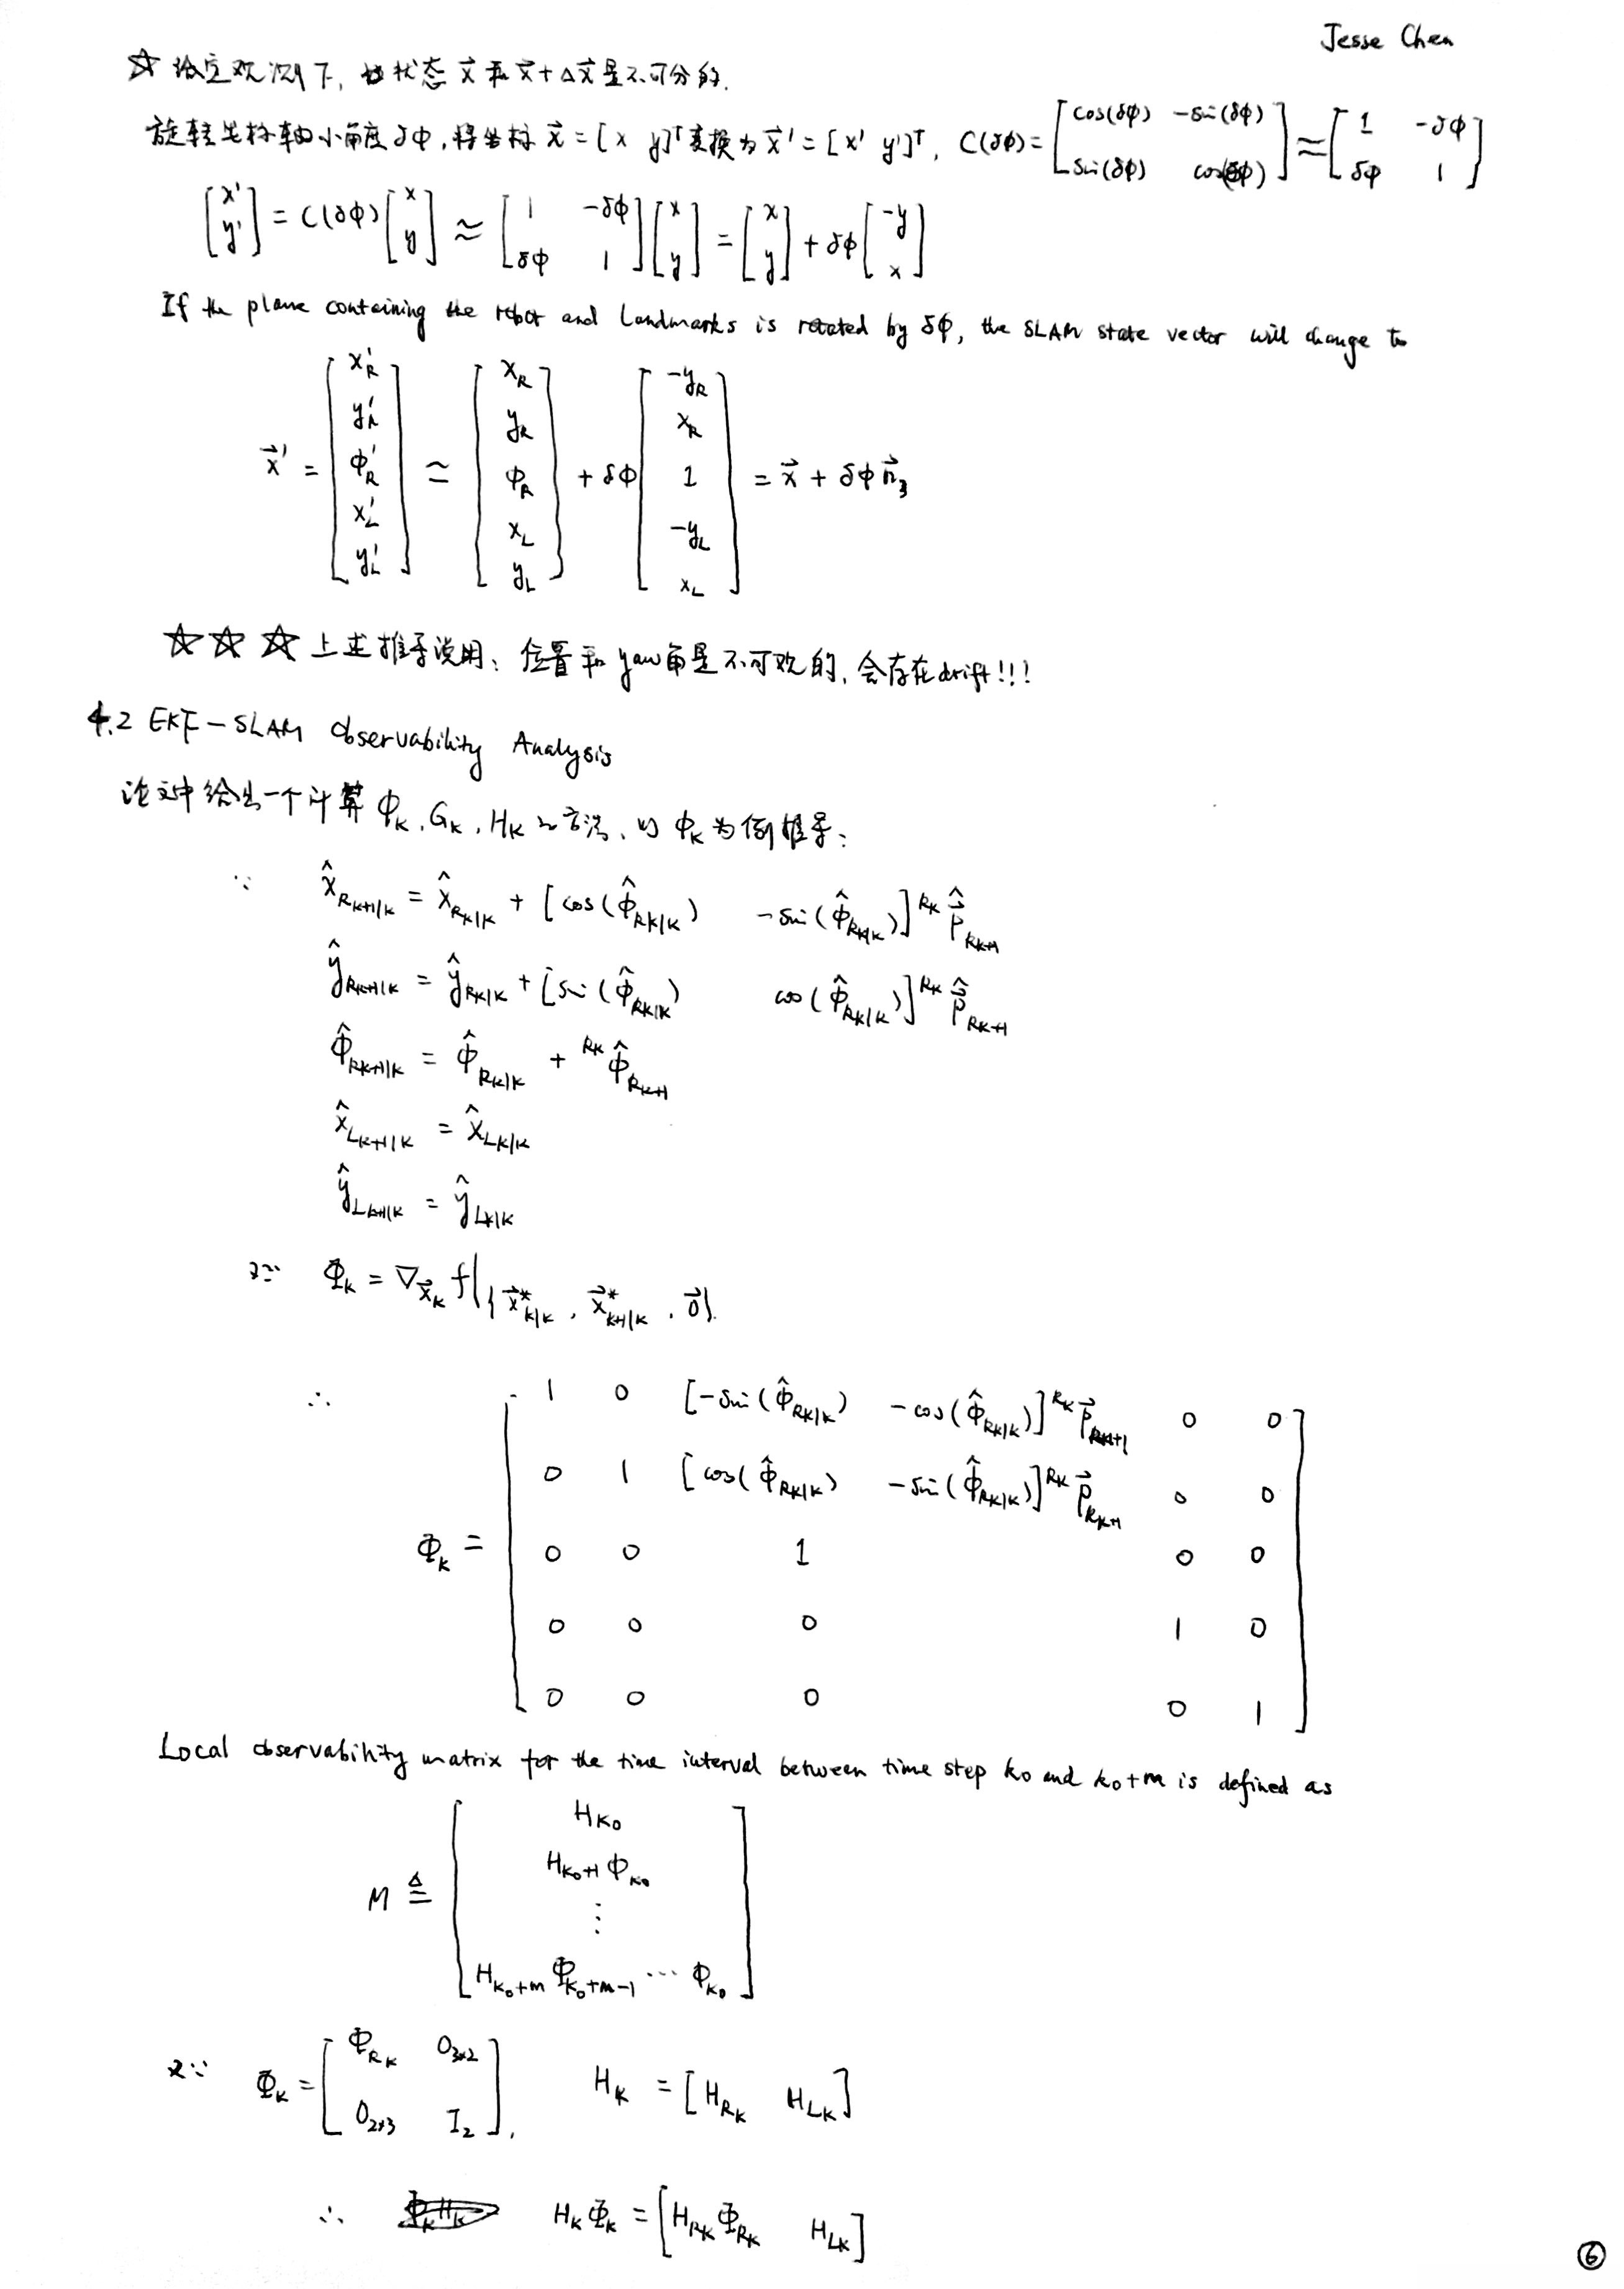 Jesse Chen
☆ 给定观测下, 状态 x⃗ 和 x⃗+Δx⃗ 是不可分的.
旋转坐标轴小角度 δφ, 将坐标 x⃗ = [x y]ᵀ 变换为 x⃗' = [x' y']ᵀ, C(δφ) = [cos(δφ) -sin(δφ); sin(δφ) cos(δφ)] ≈ [1 -δφ; δφ 1]
[x'; y'] = C(δφ)[x; y] ≈ [1 -δφ; δφ 1][x; y] = [x; y] + δφ[-y; x]
If the plane containing the robot and landmarks is rotated by δφ, the SLAM state vector will change to
x⃗' = [x'_R; y'_R; φ'_R; x'_L; y'_L] ≃ [x_R; y_R; φ_R; x_L; y_L] + δφ[-y_R; x_R; 1; -y_L; x_L] = x⃗ + δφ n⃗_3
☆☆☆ 上述推导说明: 位置和yaw角是不可观的, 会存在drift!!!
4.2 EKF-SLAM Observability Analysis
论文中给出一个计算 Φ_K, G_K, H_K 的方法, 以 Φ_K 为例推导:
∵ x̂_{R_{K+1|K}} = x̂_{R_{K|K}} + [cos(φ̂_{R_{K|K}}) -sin(φ̂_{R_{K|K}})] ^{R_K}p̂_{R_{K+1}}
ŷ_{R_{K+1|K}} = ŷ_{R_{K|K}} + [sin(φ̂_{R_{K|K}}) cos(φ̂_{R_{K|K}})] ^{R_K}p̂_{R_{K+1}}
φ̂_{R_{K+1|K}} = φ̂_{R_{K|K}} + ^{R_K}φ̂_{R_{K+1}}
x̂_{L_{K+1|K}} = x̂_{L_{K|K}}
ŷ_{L_{K+1|K}} = ŷ_{L_{K|K}}
又∵ Φ_K = ∇_{x⃗_K} f|_{{x⃗*_{K|K}, x⃗*_{K+1|K}, 0⃗}}
∴ Φ_K =
1 0 [-sin(φ̂_{R_{K|K}}) -cos(φ̂_{R_{K|K}})] ^{R_K}p⃗_{R_{K+1}} 0 0
0 1 [cos(φ̂_{R_{K|K}}) -sin(φ̂_{R_{K|K}})] ^{R_K}p⃗_{R_{K+1}} 0 0
0 0 1 0 0
0 0 0 1 0
0 0 0 0 1
Local observability matrix for the time interval between time step k₀ and k₀+m is defined as
M ≜ [H_{K₀}; H_{K₀+1} Φ_{K₀}; ⋮; H_{K₀+m} Φ_{K₀+m-1} ⋯ Φ_{K₀}]
又∵ Φ_K = [Φ_{R_K} 0_{3×2}; 0_{2×3} I_2], H_K = [H_{R_K} H_{L_K}]
∴ H_K Φ_K = [H_{R_K} Φ_{R_K} H_{L_K}]
⑥